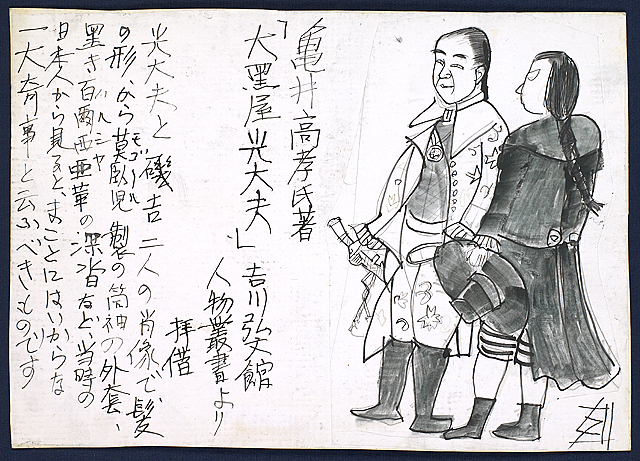 亀井高孝氏著
「大黑屋光大夫」吉川弘文館
人物叢書より
拝借
光大夫と磯吉二人の肖像で、髪
の形、から莫臥児製の筒袖の外套、
モゴル
黒き百爾西亜革の深沓など、当時の
ハルシャ
日本人から見ると、まことにはいからな
一大奇事と云ふべきものです